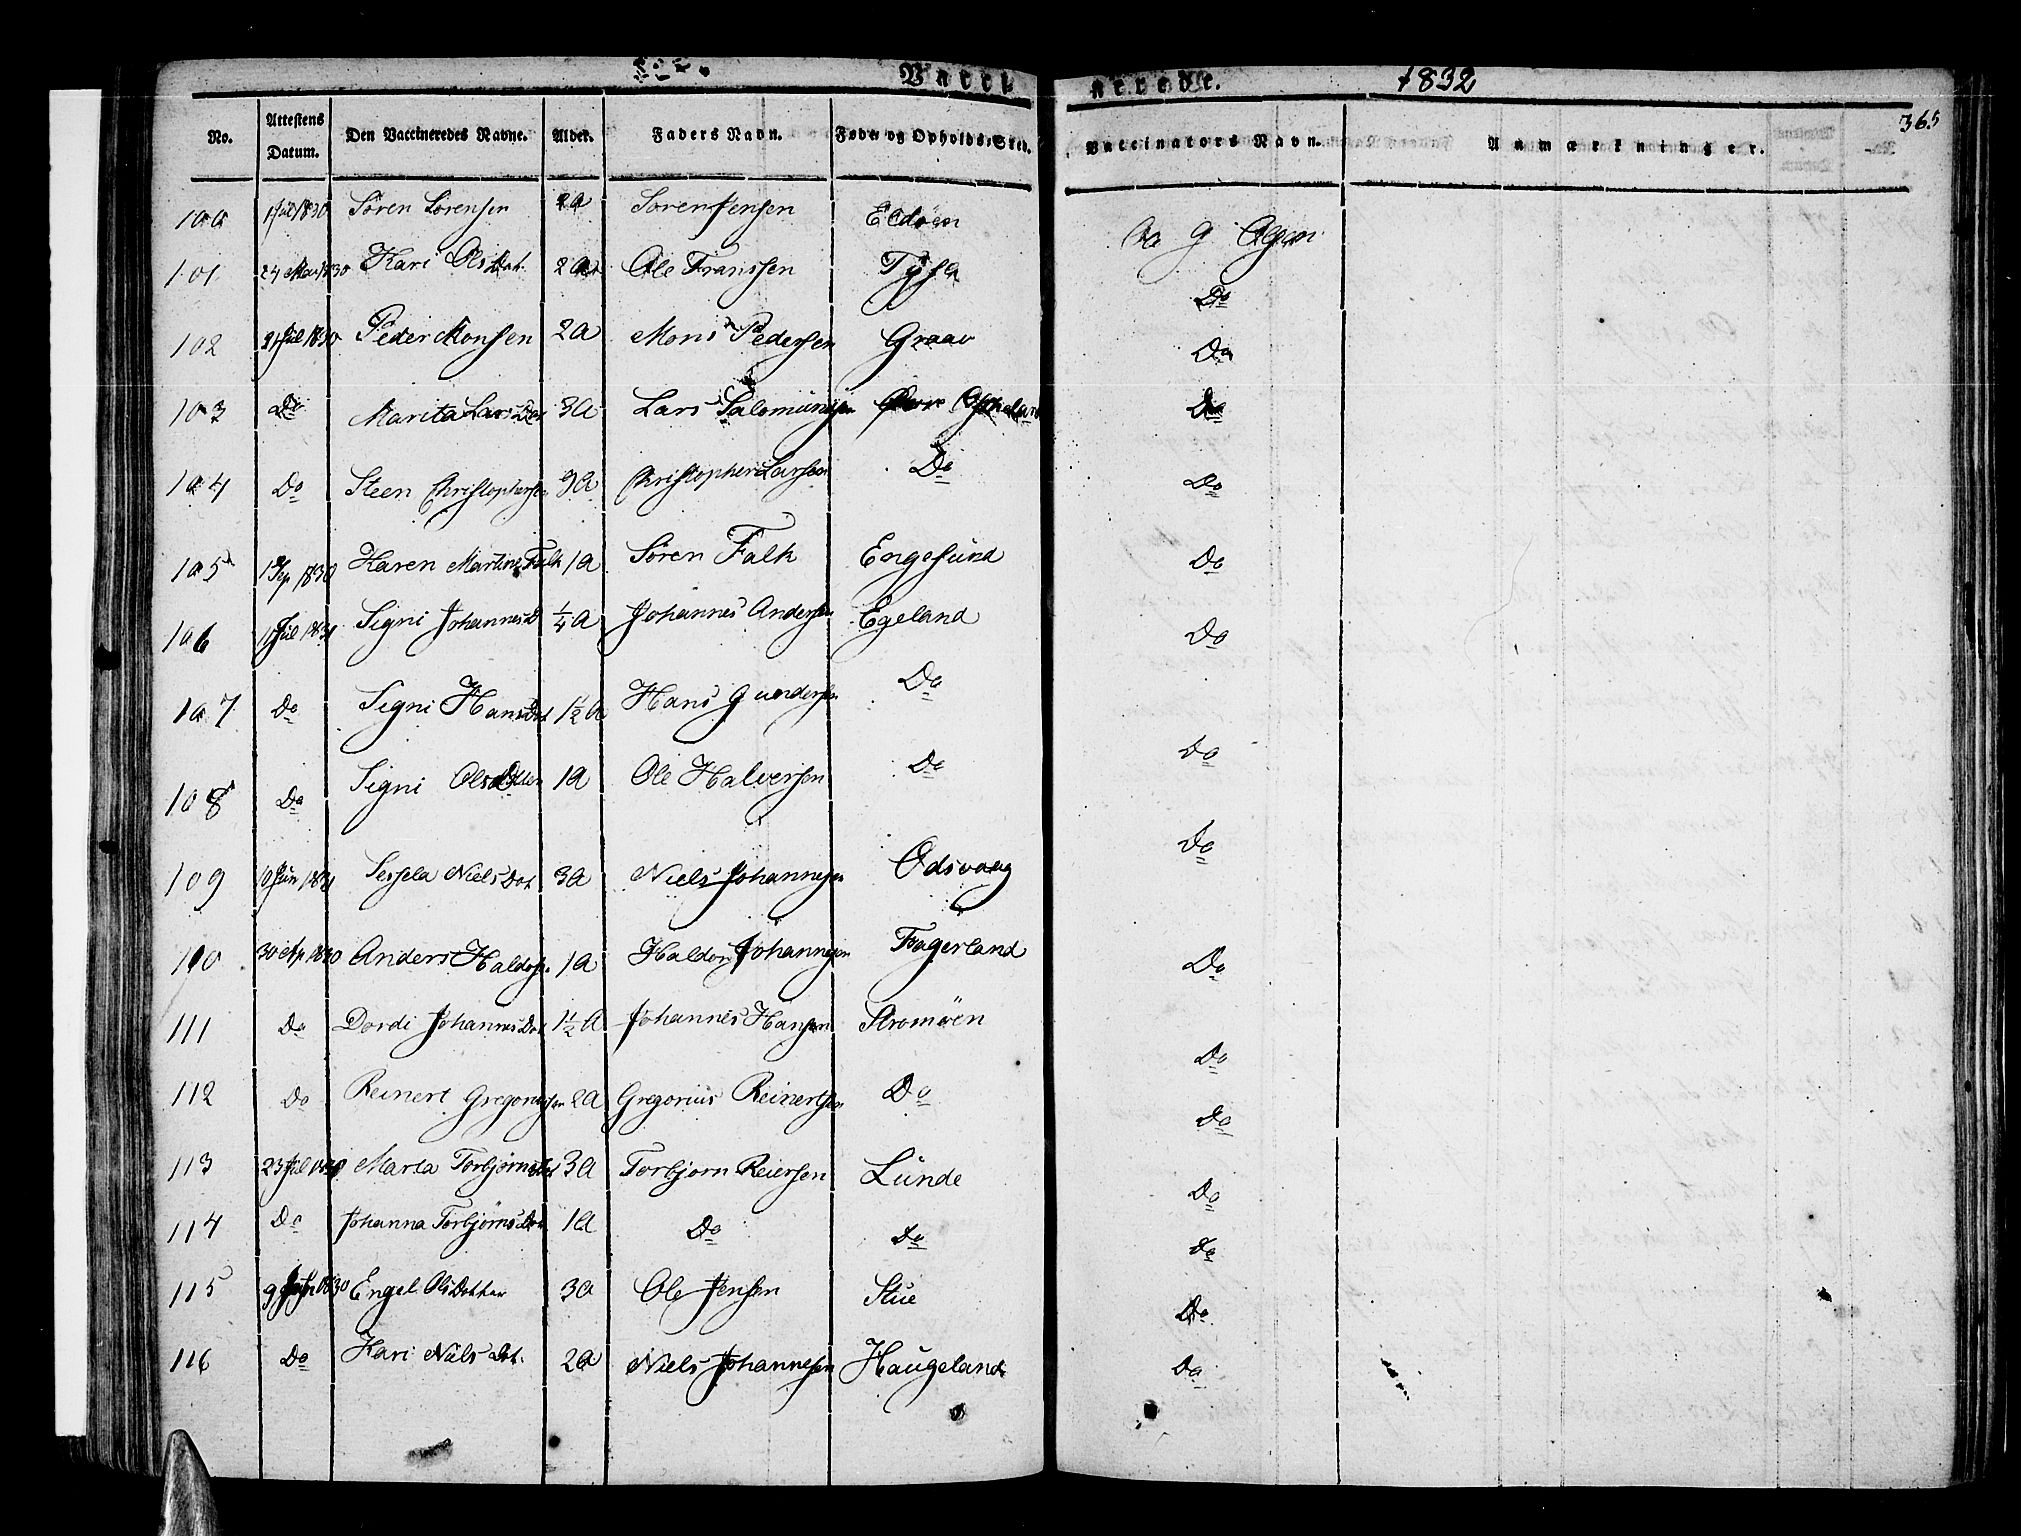 Vacci nerede. 1832
365
No. Attestens Datum. Den Vaccineredes Navne. Alder. Faders Navn. Føde- og Opholds-Sted. Vaccinators Navn. Anmærkninger.
100 1 Jul 1830 Sören Sörensen 2a Sören Jensen
101 24 Mai 1830 Kari Olsdat. 2a Ole Franssen Tysa Do
102 21 Jul 1830 Peder Monsen 2a Mons Pedersen Graav Do
103 Do Marita Lars Dat 3a Lars Salomonsen Do
104 Do Steen Christophersen Christopher Larsen Do Do
105 Sep 1830 Karen Martine Falk 1a Sören Falk Engesund Do
106 Jul 1831 Signi Johannes D 1/4 a Johannes Andersen Egeland Do
107 Do Signi Hans Dat 1 1/2 a Hans Gundersen Do Do
108 Do Signi Ols Datter 1a Ole Halversen Do Do
109 10 Jun 1831 Sessela Niels Dat 3a Niels Johannesen Odsvaag Do
110 30 Ap 1830 Anders Haldors. 1a Haldor Johannesen Fagerland Do
111 Do Dordi Johannes Dat 1 1/2 a Johannes Hansen Stromöen Do
112 Do Reinert Gregoriussen 2a Gregorius Reinertsen Do Do
113 23 Jul 1830 Marta Torbjörns Dat 3a Torbjorn Reiersen Lunde Do
114 Do Johanna Torbjörns Dat 1a Do Do Do
115 9 1830 Engel Ols Datter 3a Ole Jensen Stue Do
116 Do Kari Niels Dat. 2a Niels Johannesen Haugeland Do